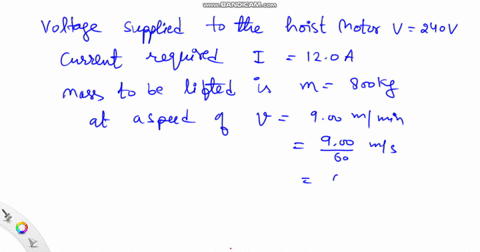 WWW.BANDICAM.COM
Voltage supplied to the hoist motor V = 240V
Current required I = 12.0 A
mass to be lifted is m = 800kg
at a speed of v = 9.00 m/min
= 9.00/60 m/s
= (